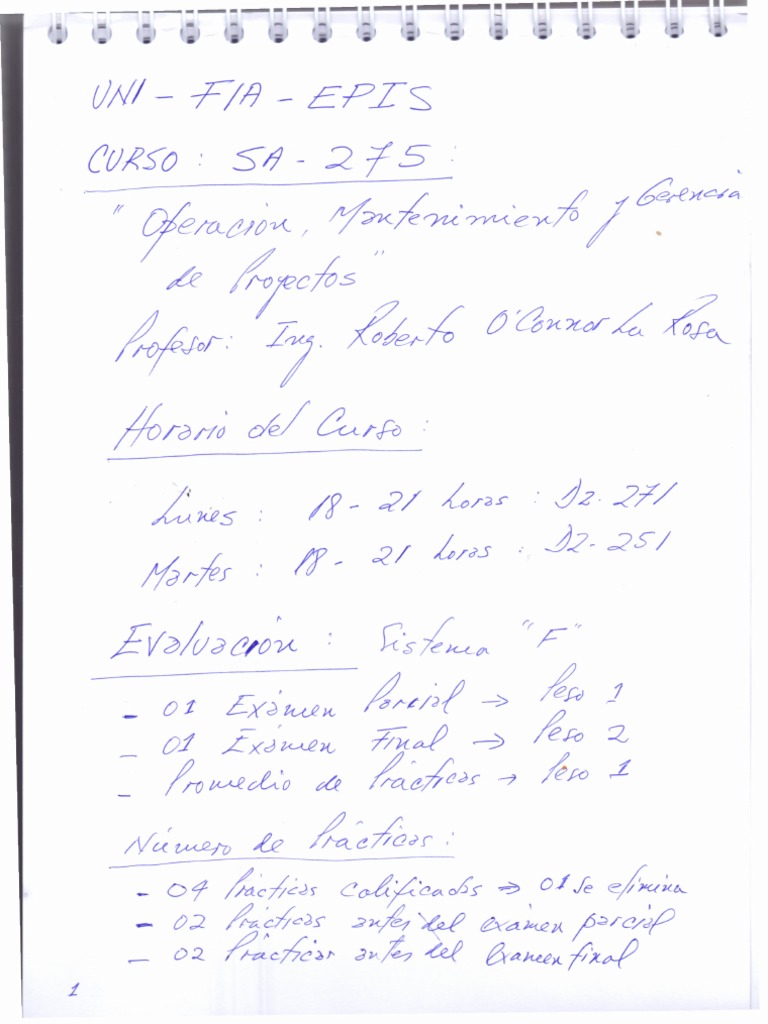 UNI - FIA - EPIS
CURSO : SA - 275 :
"Operación, Mantenimiento y Gerencia
de Proyectos"
Profesor: Ing. Roberto O'Connor La Rosa
Horario del Curso :
Lunes : 18 - 21 horas : D2-271
Martes : 18 - 21 horas : D2-251
Evaluación : Sistema "F"
- 01 Exámen Parcial → Peso 1
- 01 Exámen Final → Peso 2
- Promedio de Prácticas → Peso 1
Número de Prácticas :
- 04 Prácticas calificadas → 01 se elimina
- 02 Prácticas antes del exámen parcial
- 02 Prácticas antes del examen final
1